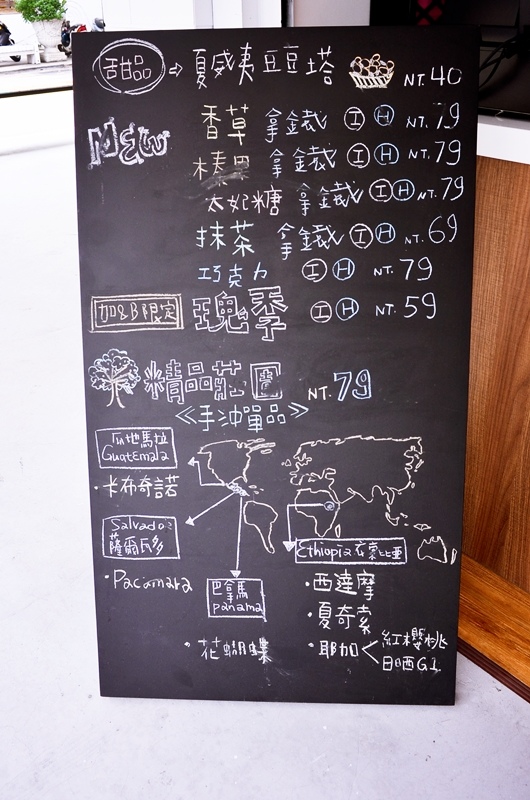 甜品 ⇨ 夏威夷豆豆塔 NT. 40
香草 拿鐵 I H NT. 79
榛果 拿鐵 I H NT. 79
太妃糖 拿鐵 I H NT. 79
抹茶 拿鐵 I H NT. 69
巧克力 I H NT. 79
限定 I H NT. 59
精品莊園 NT. 79
《手沖單品》
瓜地馬拉
Guatemala
・卡布奇諾
Salvador
薩爾瓦多
・Pacamara
巴拿馬
panama
・花蝴蝶
Ethiopia 衣索比亞
・西達摩
・夏奇索
・耶加 < 紅櫻桃
日晒G1